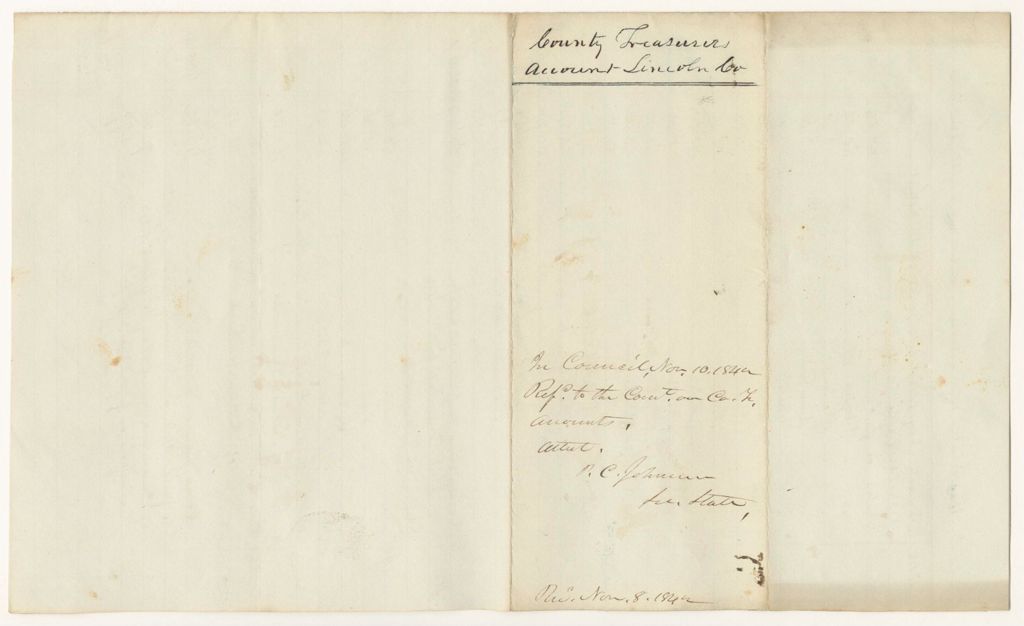 County Treasurers
Account Lincoln Co
In Council, Nov. 10. 1842
Ref.d to the Com.t on Co. Tr.
Accounts.
Attest.
P. C. Johnson
Sec. State,
Rec.d Nov. 8. 1842